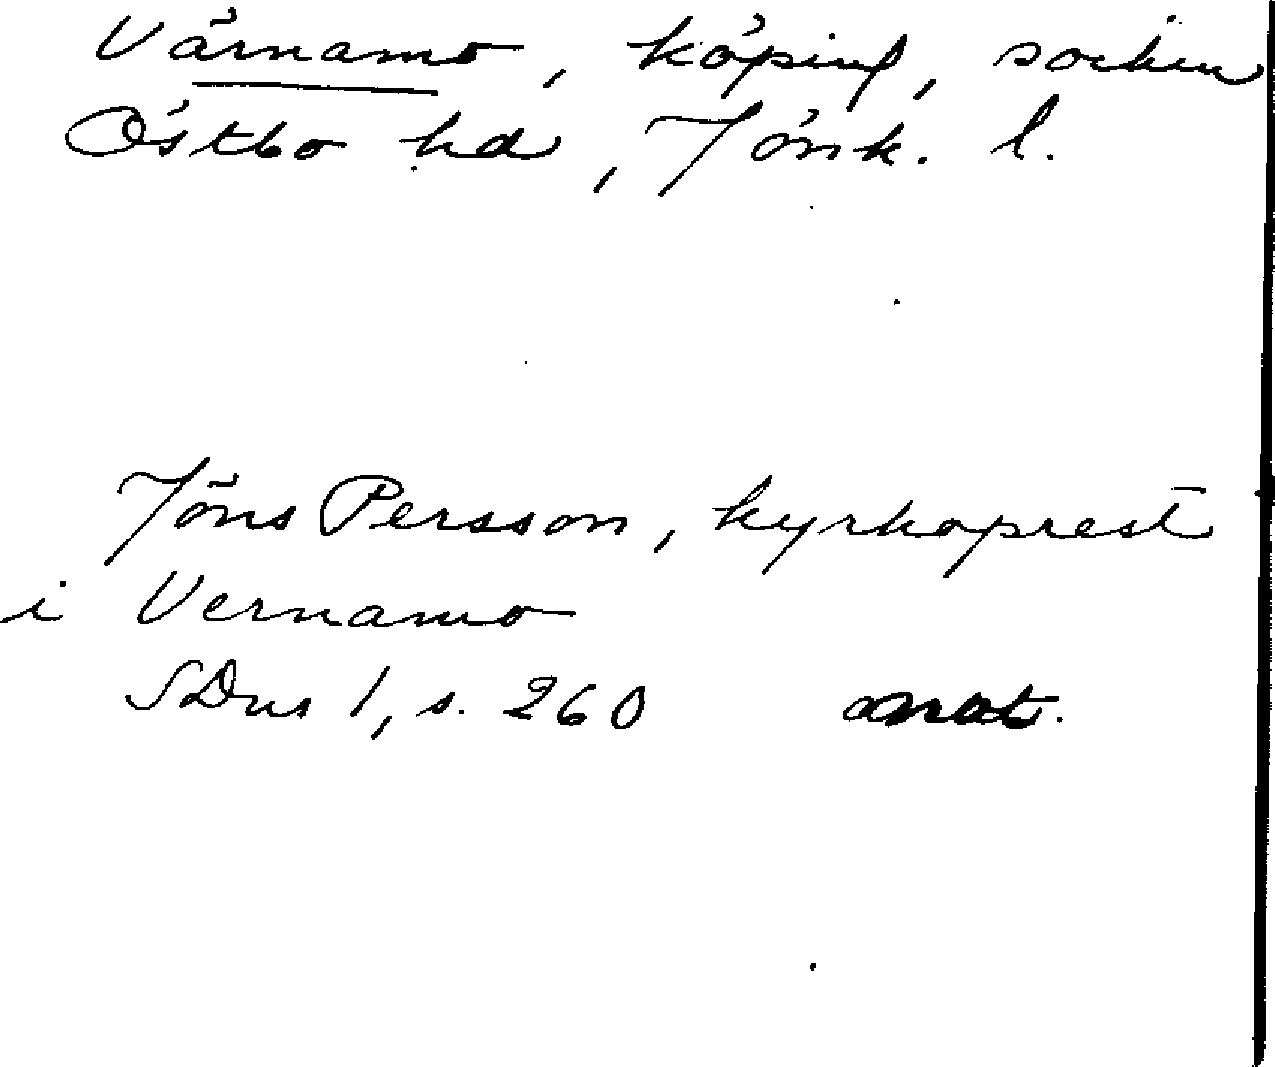 Värnamo, köping, socken
Östbo hd, Jönk. l.
Jöns Persson, kyrkoprest
i Vernamo
SDns 1, s. 260